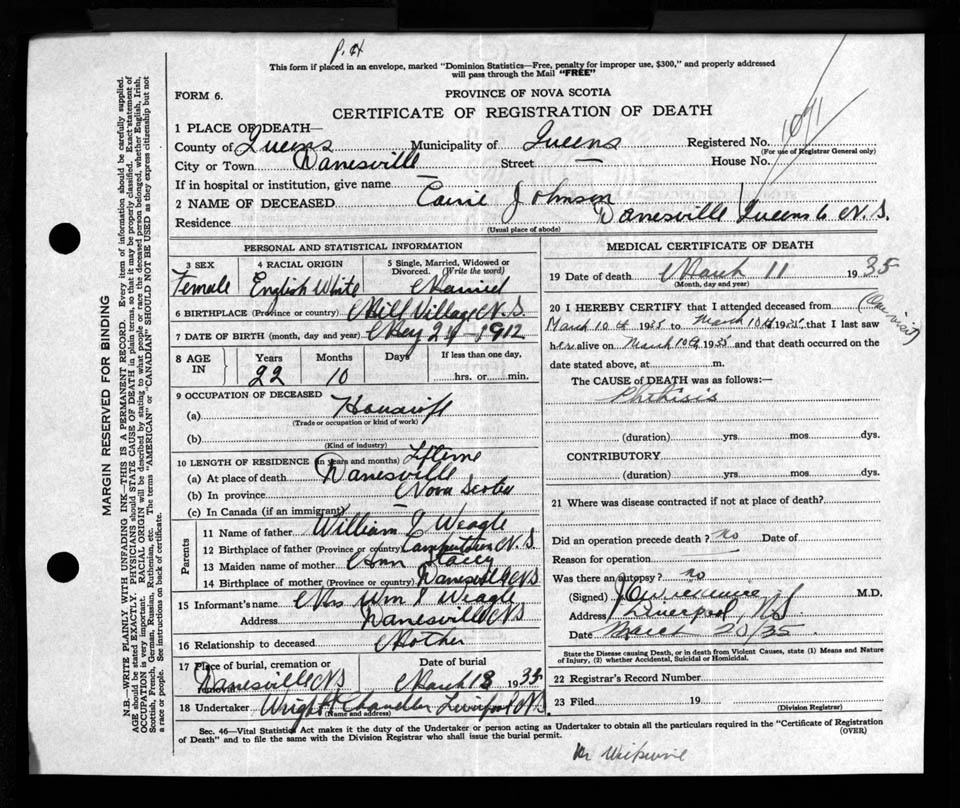 P. 4
This form if placed in an envelope, marked "Dominion Statistics—Free, penalty for improper use, $300," and properly addressed
will pass through the Mail "FREE"
FORM 6.
PROVINCE OF NOVA SCOTIA
CERTIFICATE OF REGISTRATION OF DEATH
1071
1 PLACE OF DEATH—
County of Queens Municipality of Queens Registered No.
(For use of Registrar General only)
City or Town Danesville Street — House No.
If in hospital or institution, give name —
2 NAME OF DECEASED Carrie Johnson
Residence Danesville Queens Co N.S.
(Usual place of abode)
PERSONAL AND STATISTICAL INFORMATION
3 SEX 4 RACIAL ORIGIN 5 Single, Married, Widowed or Divorced. (Write the word)
Female English White Married
6 BIRTHPLACE (Province or country) Mill Village N.S.
7 DATE OF BIRTH (month, day and year) May 24 1912
8 AGE IN Years Months Days If less than one day,
22 10 hrs. or min.
9 OCCUPATION OF DECEASED
(a) Housewife
(Trade or occupation or kind of work)
(b)
(Kind of industry)
10 LENGTH OF RESIDENCE (in years and months) Lifetime
(a) At place of death Danesville
(b) In province Nova Scotia
(c) In Canada (if an immigrant)
Parents
11 Name of father William I Weagle
12 Birthplace of father (Province or country) N.S.
13 Maiden name of mother Ann
14 Birthplace of mother (Province or country) Danesville NS
15 Informant's name Mrs Wm I Weagle
Address Danesville NS
16 Relationship to deceased Mother
17 Place of burial, cremation or removal Date of burial
Danesville NS March 13 1935
18 Undertaker Wright & Chandler Liverpool NS
(Name and address)
MEDICAL CERTIFICATE OF DEATH
19 Date of death March 11 1935
(Month, day and year)
20 I HEREBY CERTIFY that I attended deceased from (One visit)
March 10th 1935 to March 10th 1935 that I last saw
her alive on March 10th 1935 and that death occurred on the
date stated above, at m.
The CAUSE of DEATH was as follows:—
Phthisis
(duration) yrs. mos. dys.
CONTRIBUTORY
(duration) yrs. mos. dys.
21 Where was disease contracted if not at place of death?
Did an operation precede death? no Date of
Reason for operation
Was there an autopsy? no
(Signed) M.D.
Address Liverpool, NS
Date March 20/35
State the Disease causing Death, or in death from Violent Causes, state (1) Means and Nature
of Injury, (2) whether Accidental, Suicidal or Homicidal.
22 Registrar's Record Number
23 Filed 19
(Division Registrar)
Sec. 46—Vital Statistics Act makes it duty of the Undertaker or person acting as Undertaker to obtain all the particulars required in the "Certificate of Registration
of Death" and to file the same with the Division Registrar who shall issue the burial permit.
(OVER)
Dr
MARGIN RESERVED FOR BINDING
N.B.—WRITE PLAINLY WITH UNFADING INK—THIS IS A PERMANENT RECORD. Every item of information should be carefully supplied.
AGE should be stated EXACTLY. PHYSICIANS should STATE CAUSE OF DEATH in plain terms, so that it may be properly classified. Exact statement of
OCCUPATION is very important. RACIAL ORIGIN will be described by stating to what people or race the deceased person belonged, whether English, Irish,
Scottish, French, German, Russian, Ruthenian, etc. The terms "AMERICAN" or "CANADIAN" SHOULD NOT BE USED as they express citizenship but not
a race or people. See instructions on back of certificate.